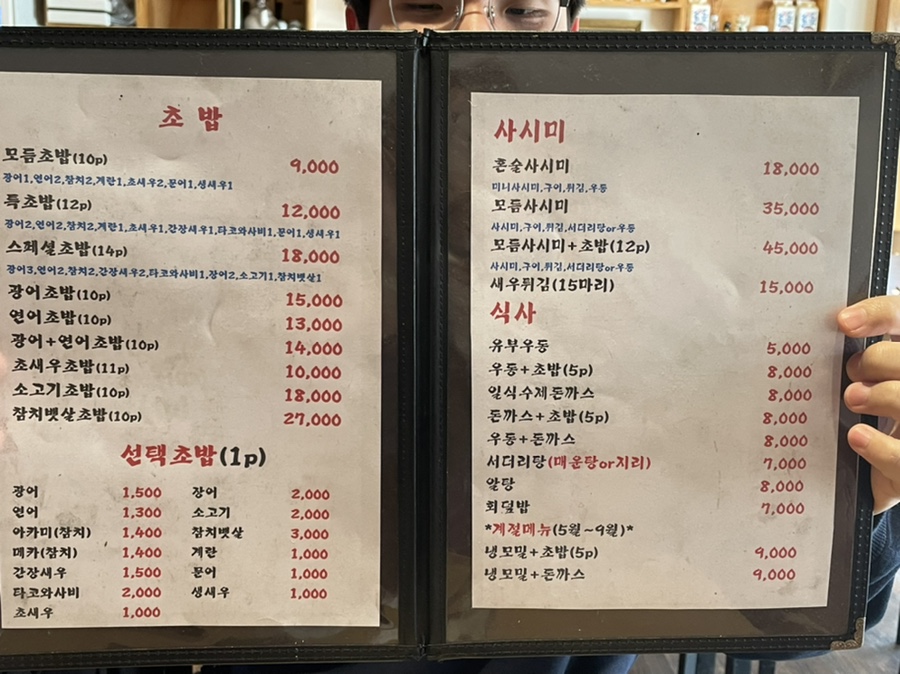 초 밥
모듬초밥(10p) 9,000
광어1,연어2,참치2,계란1,초새우2,문어1,생새우1
특초밥(12p) 12,000
광어2,연어2,참치2,계란1,초새우1,간장새우1,타코와사비1,문어1,생새우1
스페셜초밥(14p) 18,000
광어3,연어2,참치2,간장새우2,타코와사비1,장어2,소고기1,참치뱃살1
광어초밥(10p) 15,000
연어초밥(10p) 13,000
광어+연어초밥(10p) 14,000
초새우초밥(11p) 10,000
소고기초밥(10p) 18,000
참치뱃살초밥(10p) 27,000
선택초밥(1p)
광어 1,500 장어 2,000
연어 1,300 소고기 2,000
아카미(참치) 1,400 참치뱃살 3,000
메카(참치) 1,400 계란 1,000
간장새우 1,500 문어 1,000
타코와사비 2,000 생새우 1,000
초새우 1,000
사시미
혼술사시미 18,000
미니사시미,구이,튀김,우동
모듬사시미 35,000
사시미,구이,튀김,서더리탕or우동
모듬사시미+초밥(12p) 45,000
사시미,구이,튀김,서더리탕or우동
새우튀김(15마리) 15,000
식사
유부우동 5,000
우동+초밥(5p) 8,000
일식수제돈까스 8,000
돈까스+초밥(5p) 8,000
우동+돈까스 8,000
서더리탕(매운탕or지리) 7,000
알탕 8,000
회덮밥 7,000
*계절메뉴(5월~9월)*
냉모밀+초밥(5p) 9,000
냉모밀+돈까스 9,000